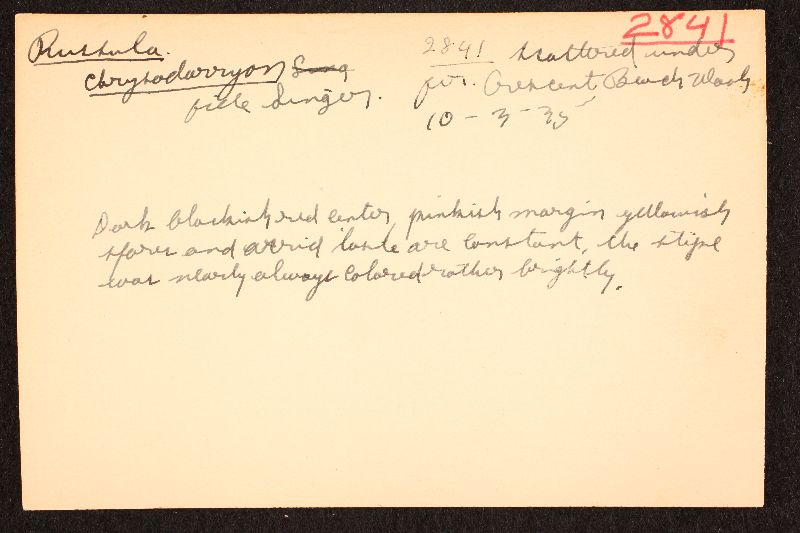 2841
Russula.
chrysodacryon Sing
fide Singer.
2841 scattered under
fir. Crescent Beach Wash
10-3-35
Dark blackish red center, pinkish margin yellowish
spores and acrid taste are constant, the stipe
was nearly always colored rather brightly.